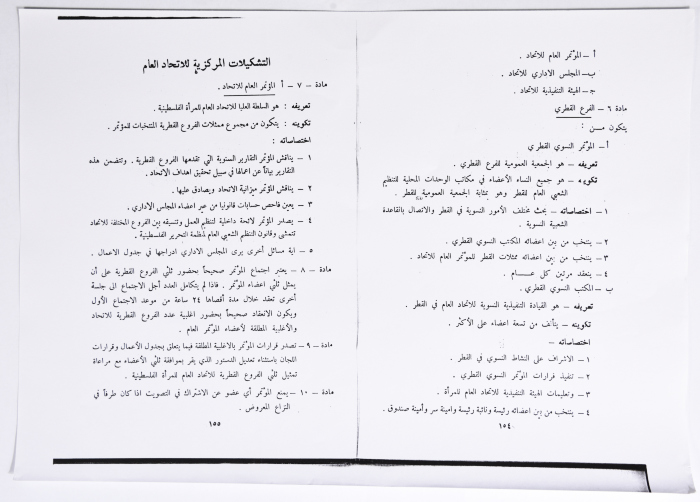 أ – المؤتمر العام للاتحاد .
ب– المجلس الاداري للاتحاد .
ج– الهيئة التنفيذية للاتحاد .
مادة ٦ – الفرع القطري
يتكون مـــن :
أ– المؤتمر النسوي القطري
تعريفه – هو الجمعية العمومية للفرع القطري .
تكوينه – هو جميع النساء الأعضاء في مكاتب الوحدات المحلية للتنظيم
الشعبي العام للقطر وهو بمثابة الجمعية العمومية للقطر .
١ – اختصاصاته – بحث مختلف الأمور النسوية في القطر والاتصال بالقاعدة
الشعبية النسوية .
٢ – ينتخب من بين اعضائه المكتب النسوي القطري .
٣ – ينتخب من بين اعضائه ممثلات القطر للمؤتمر العام للاتحاد .
٤ – ينعقد مرتين كل عـــــام .
ب – المكتب النسوي القطري .
تعريفه – هو القيادة التنفيذية النسوية للاتحاد العام في القطر .
تكوينه – يتألف من تسعة اعضاء على الأكثر .
اختصاصاته –
١ – الاشراف على النشاط النسوي في القطر .
٢ – تنفيذ قرارات المؤتمر النسوي القطري .
٣ – وتعليمات الهيئة التنفيذية للاتحاد العام للمرأة .
٤ – ينتخب من بين اعضائه رئيسة ونائبة رئيسة وامينة سر وأمينة صندوق .
١٥٤
التشكيلات المركزية للاتحاد العام
مادة – ٧ – أ المؤتمر العام للاتحاد .
تعريفه : هو السلطة العليا للاتحاد العام للمرأة الفلسطينية .
تكوينه : يتكون من مجموع ممثلات الفروع القطرية المنتخبات للمؤتمر .
اختصاصاته :
١ – يناقش المؤتمر التقارير السنوية التي تقدمها الفروع القطرية . وتتضمن هذه
التقارير بياناً عن اعمالها في سبيل تحقيق اهداف الاتحاد .
٢ – يناقش المؤتمر ميزانية الاتحاد ويصادق عليها .
٣ – يعين فاحص حسابات قانونيا من غير اعضاء المجلس الاداري .
٤ – يصدر المؤتمر لائحة داخلية لتنظيم العمل وتنسيقه بين الفروع المختلفة للاتحاد
تتمشى وقانون التنظيم الشعبي العام لمنظمة التحرير الفلسطينية .
٥ – اية مسائل أخرى يرى المجلس الاداري ادراجها في جدول الاعمال .
مادة – ٨ – يعتبر اجتماع المؤتمر صحيحاً بحضور ثلثي الفروع القطرية على أن
يمثل ثلثي اعضاء المؤتمر . فاذا لم يتكامل العدد أجل الاجتماع الى جلسة
أخرى تعقد خلال مدة أقصاها ٢٤ ساعة من موعد الاجتماع الأول
ويكون الانعقاد صحيحاً بحضور اغلبية عدد الفروع القطرية للاتحاد
والأغلبية المطلقة لأعضاء المؤتمر العام .
مادة – ٩ – تصدر قرارات المؤتمر بالاغلبية المطلقة فيما يتعلق بجدول الأعمال وقرارات
اللجان باستثناء تعديل الدستور الذي يقر بموافقة ثلثي الأعضاء مع مراعاة
تمثيل ثلثي الفروع القطرية للاتحاد العام للمرأة الفلسطينية .
مادة – ١٠ – يمنع المؤتمر أي عضو عن الاشتراك في التصويت اذا كان طرفاً في
النزاع المعروض .
١٥٥